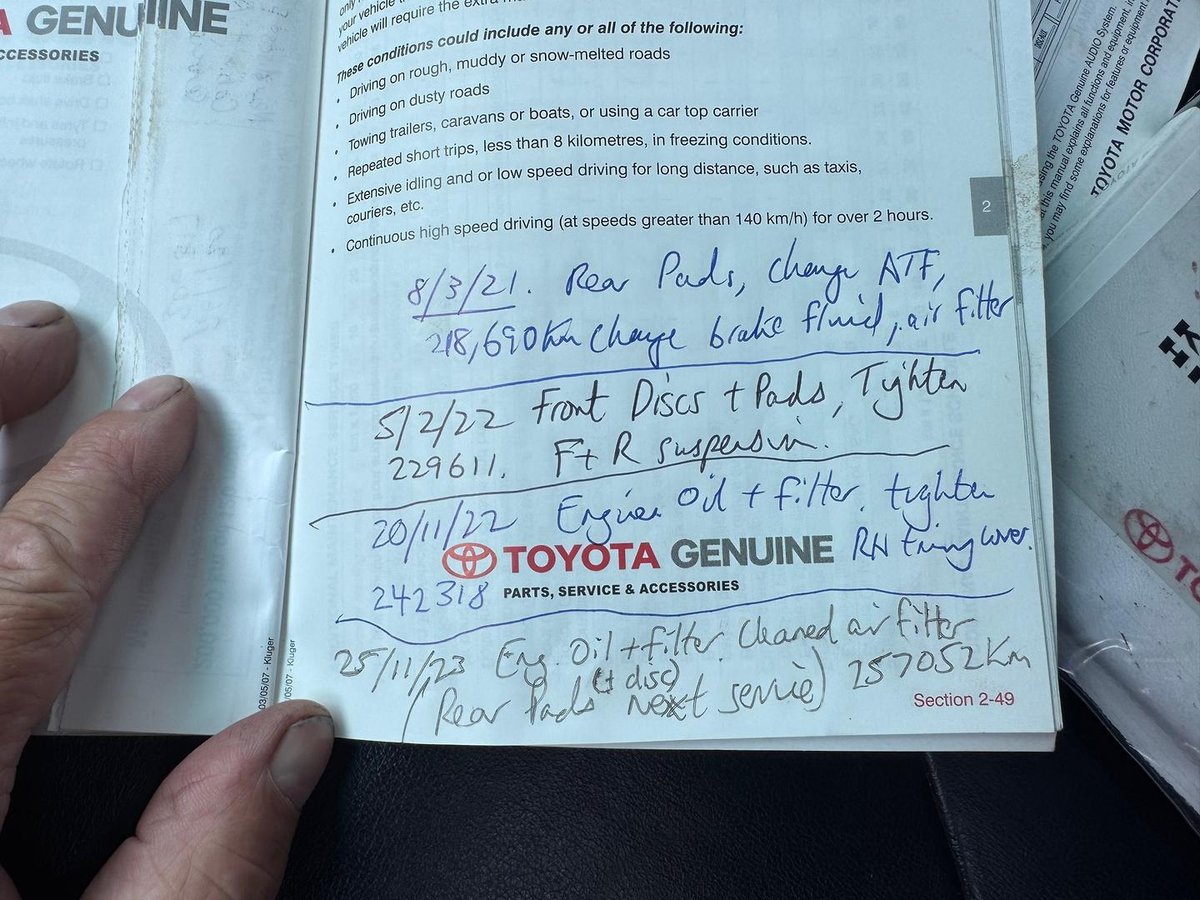 GENUINE
ACCESSORIES
only
your vehicle
vehicle will require the extra
These conditions could include any or all of the following:
• Driving on rough, muddy or snow-melted roads
• Driving on dusty roads
• Towing trailers, caravans or boats, or using a car top carrier
• Repeated short trips, less than 8 kilometres, in freezing conditions.
• Extensive idling and or low speed driving for long distance, such as taxis,
couriers, etc.
• Continuous high speed driving (at speeds greater than 140 km/h) for over 2 hours.
2
8/3/21. Rear Pads, change ATF,
218,690Km Change brake fluid, air filter
5/2/22 Front Discs + Pads, Tighten
229611. F + R suspension.
20/11/22 Engine Oil + filter. tighten
RH timing cover.
TOYOTA GENUINE
242318 PARTS, SERVICE & ACCESSORIES
25/11/23 Eng. Oil + filter. Cleaned air filter
(+ disc)
(Rear Pads next service) 257052Km
Section 2-49
03/05/07 - Kluger
05/07 - Kluger
using the TOYOTA Genuine AUDIO System.
this manual explains all functions and equipment,
you may find some explanations for features or equipment
TOYOTA MOTOR CORPORAT